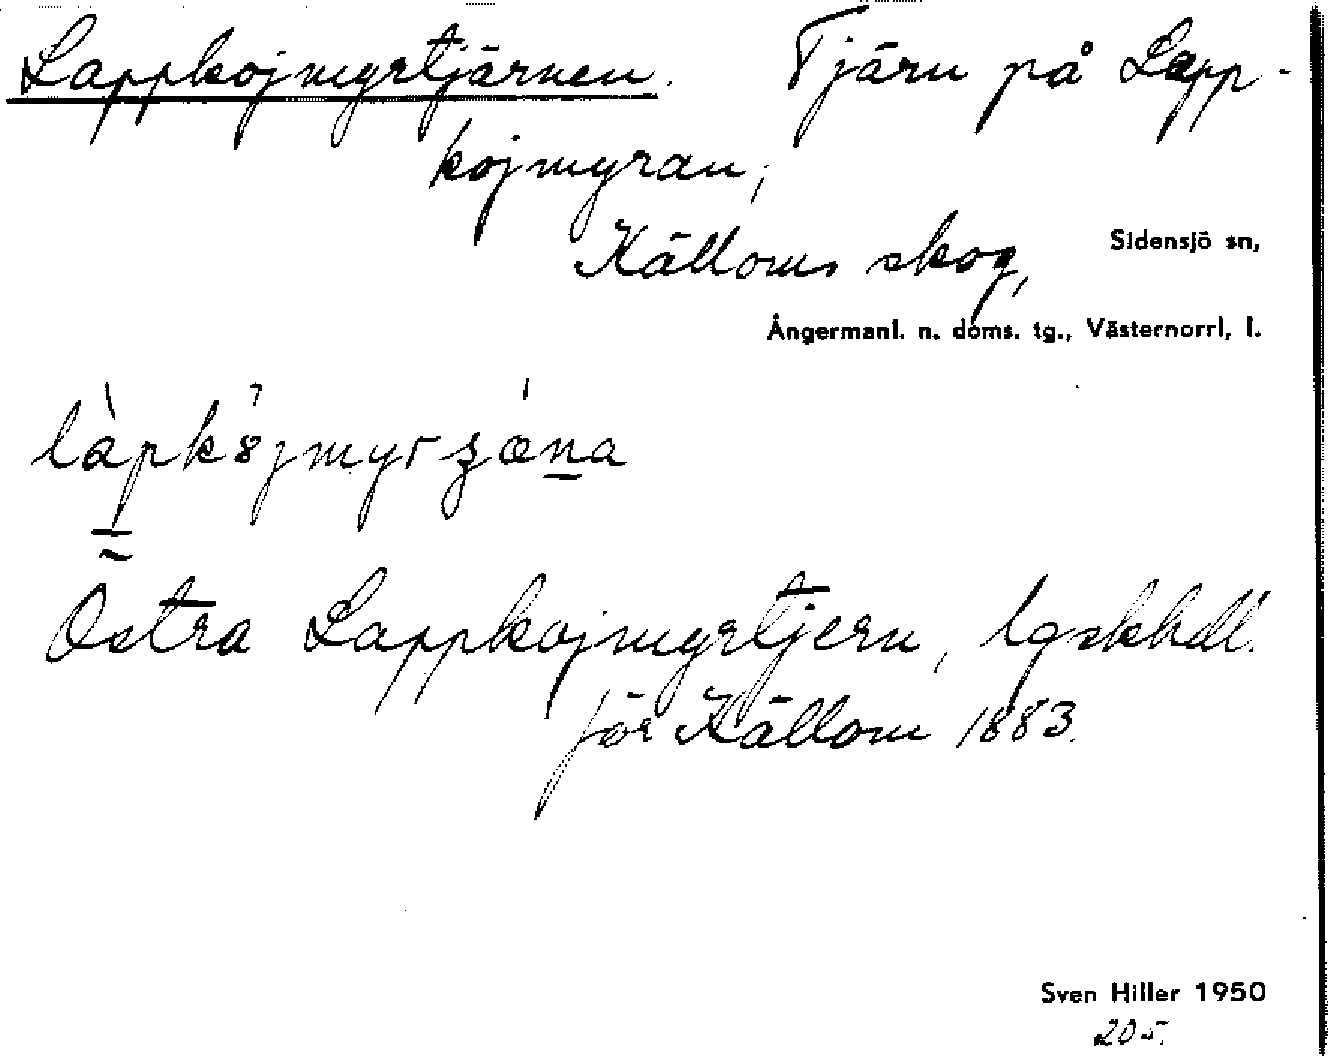 Lappkojmyrtjärnen. Tjärn på Lapp-
kojmyran,
Källoms skog,
Sidensjö sn,
Ångermanl. n. doms. tg., Västernorrl. l.
Östra Lappkojmyrtjern, lgskhdl.
för Källom 1883.
Sven Hiller 1950
205.